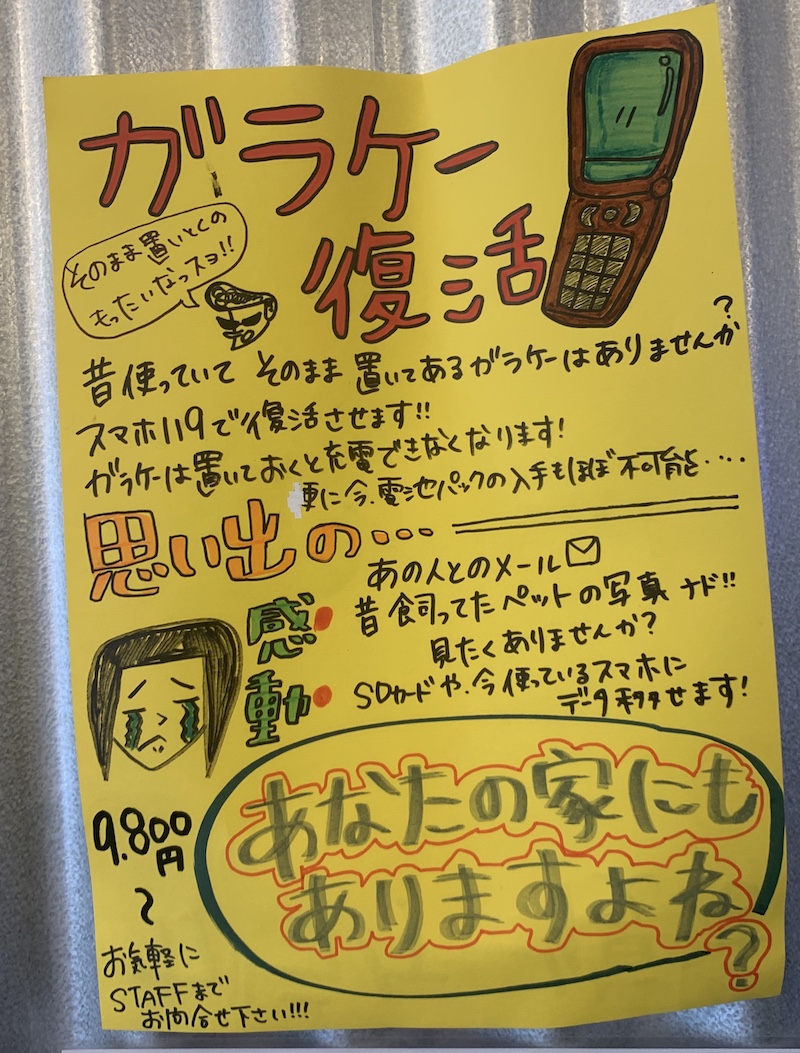 ガラケー
復活
そのまま置いとくの
もったいなっスョ!!
昔使っていて そのまま 置いてあるガラケーはありませんか?
スマホ119で復活させます!!
ガラケーは置いておくと充電できなくなります!
更に今、電池パックの入手もほぼ不可能・・・・
思い出の・・・
あの人とのメール
昔飼ってたペットの写真 ナド!!
見たくありませんか?
SDカードや、今使っているスマホに
データ移せます!
感動
あなたの家にも
ありますよね?
9.800円
~
お気軽に
STAFFまで
お問合せ下さい!!!